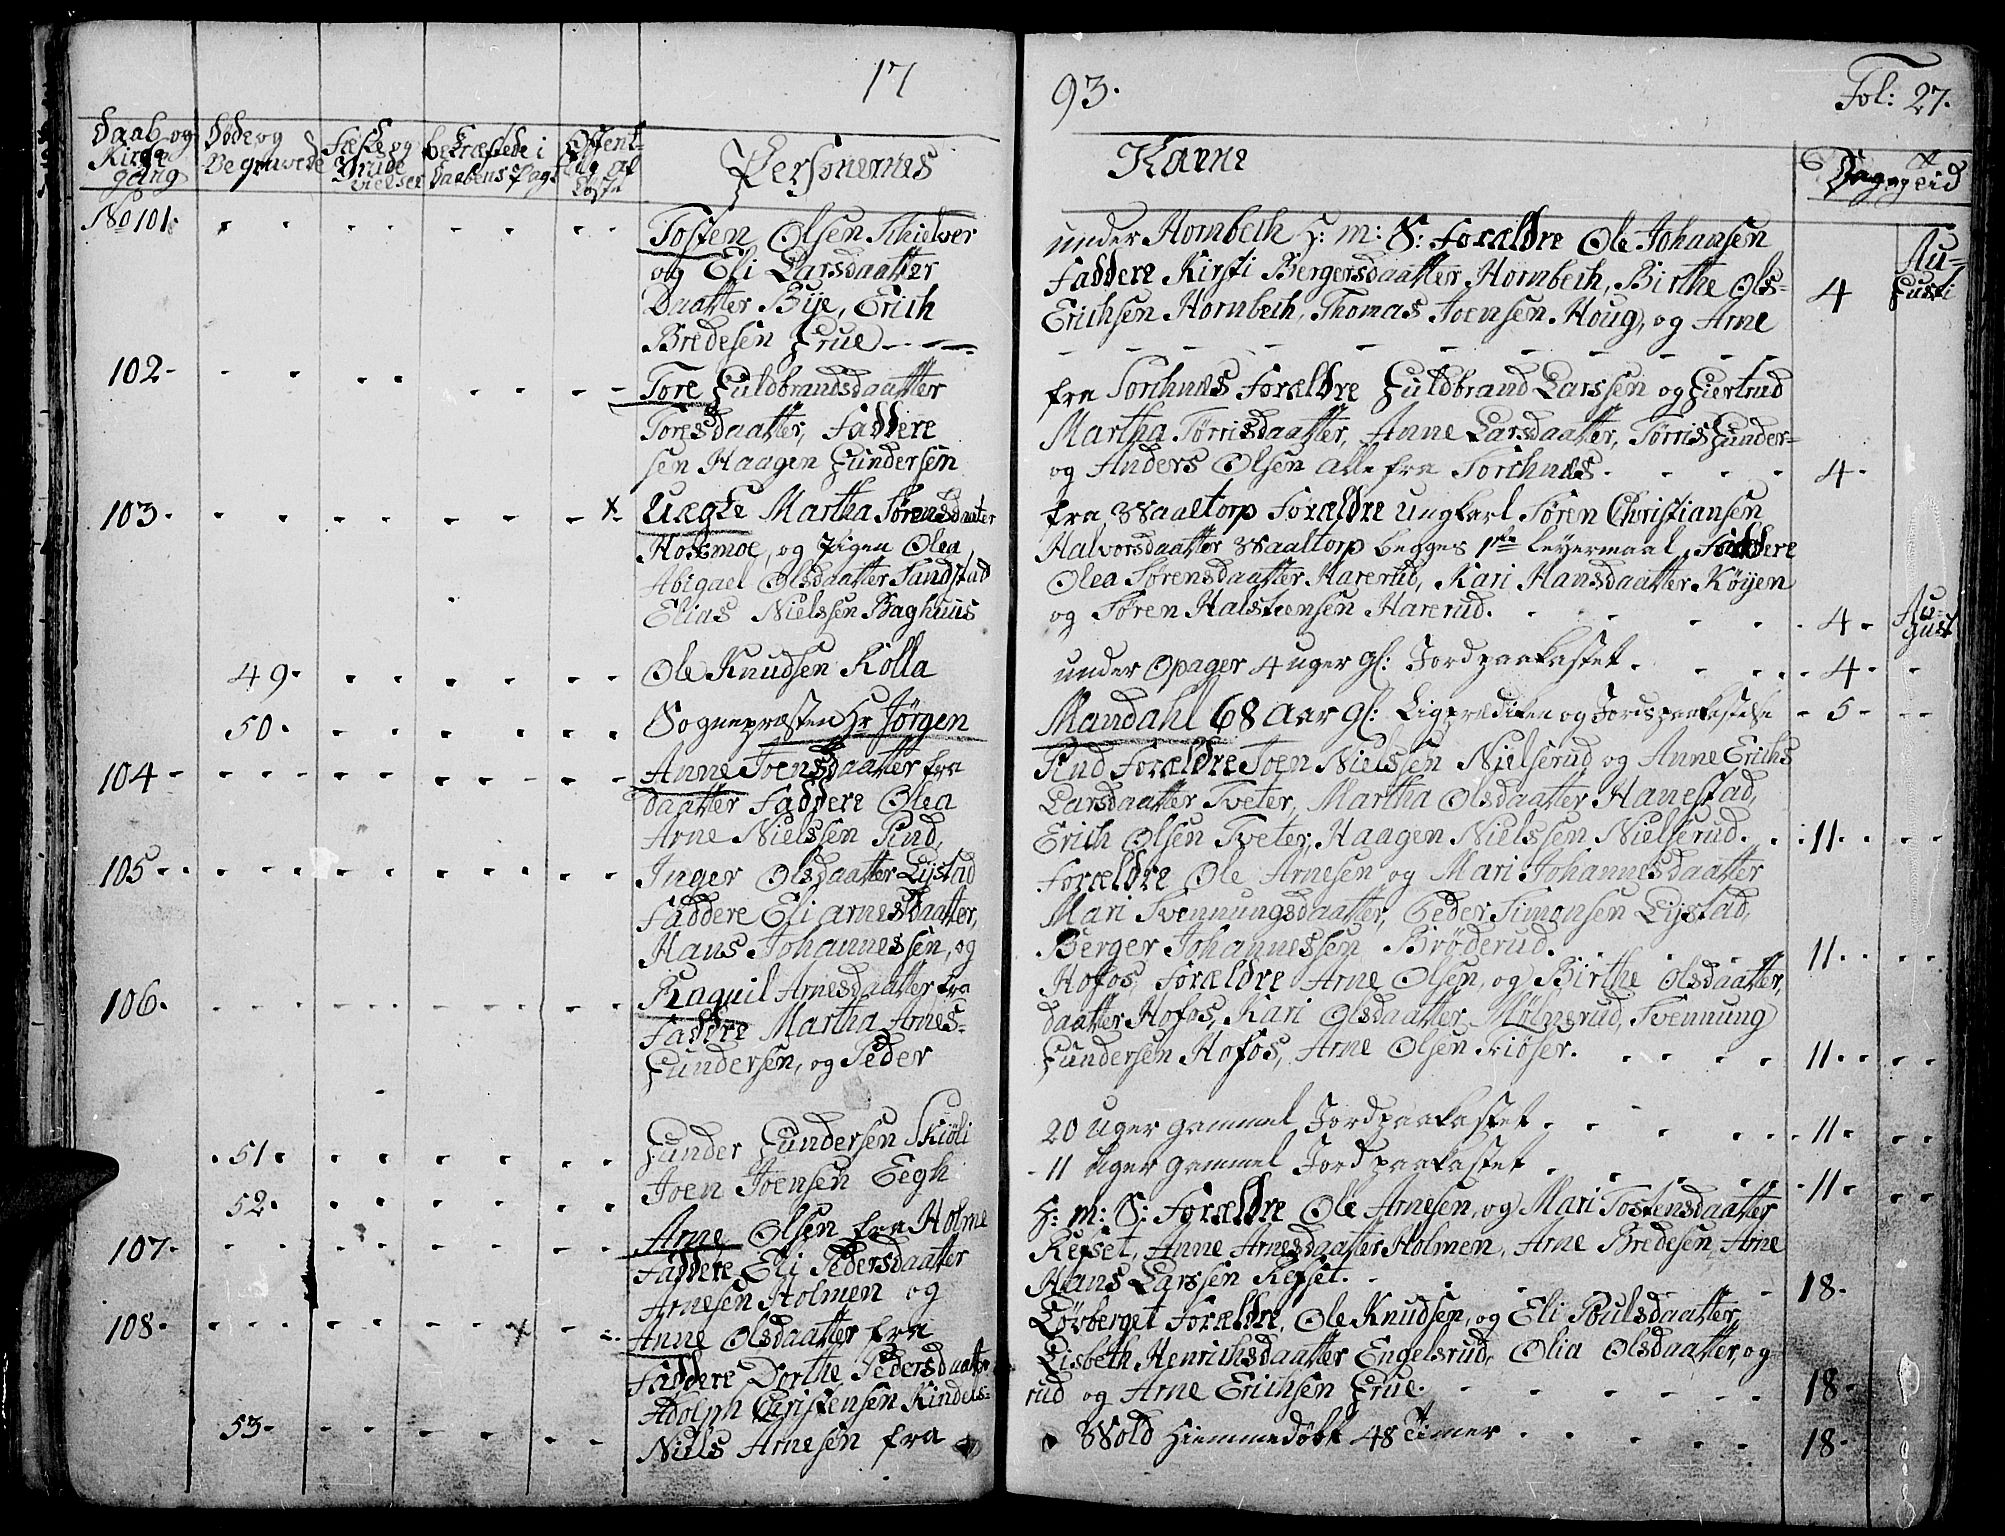 17
93.
Fol: 27.
Daab og Kirke gang
Døde og Begravede
Fæste og Brude vielser
bekræftede i Daabens Pagt
Offent- lig af løste
Personernes
Navne
Dag og Tid
No 101. Tosten Olsen Skielver under Hornbech H: m: S: Forældre Ole Johansen
og Eli Larsdaatter Faddere Kirsti Bergersdaatter Hornbech, Birthe Ols-
Daatter Bye, Erich Erichsen Hornbech, Thomas Joensen Houg, og Arne 4 Au- gusti
Bredesen Grue
102 Tore Guldbrandsdaatter fra Torchnæs Forældre Guldbrand Larssen og Giertrud
Toresdaatter, Faddere Martha Tørrisdaatter, Anne Larsdaatter, Tørris Gunder-
sen Haagen Gundersen og Anders Olsen alle fra Torchnæs 4
103 x Uægte Martha Sørensdaater fra Waaltorp Forældre Ungkarl Søren Christiansen
Hosmoe, og Pigen Olea Halvorsdaatter Waaltorp begges 1ste Leyermaal Faddere
Abigael Olsdaatter Sandstad Olea Sørensdaatter Harerud, Kari Hansdaatter Køyen
Elias Nielssen Baghuus og Søren Halstensen Harerud. 4 Au- gust
49 Ole Knudsen Kolla under Opager 4 uger gl: Jordpaakastet 4
50 Sognepræsten Hr Jørgen Mandahl 68 Aar gl: Ligprædiken og Jordspaakastelse 5
104 Anne Joensdaatter fra Rud Forældre Joen Nielssen Nielserud og Anne Erichs
daatter Faddere Olea Larsdaatter Tveter, Martha Olsdaatter Hanestad,
Arne Nielssen Rud, Erich Olsen Tveter, Haagen Nielssen Nielserud. 11
105 Inger Olsdaatter Lystad Forældre Ole Arnesen og Mari Johannesdaatter
Faddere Eli Arnesdaatter, Mari Svennungsdaatter, Peder Simonsen Lystad,
Hans Johannessen, og Berger Johannessen Brøderud. 11
106 Raquil Arnesdaatter fra Hofos, Forældre Arne Olsen, og Birthe Olsdaatter,
Faddre Martha Arnes- daatter Hofos, Kari Olsdaatter Mølnerud, Svennung
Gundersen, og Peder Gundersen Hofos, Arne Olsen Kiøser. 11
51 Gunder Gundersen Skiøli 20 Uger gammel Jordpaakastet 11
52 Joen Joensen Eegh 11 Uger gammel Jordpaakastet 11
107 Arne Olsen fra Holme H: m: S: Forældre Ole Arnesen, og Mari Tostensdaatter
Faddere Eli Pedersdaatter Refset, Anne Arnesdaatter Holmen, Arne Bredesen, Arne
Arnesen Holmen og Hans Larssen Refset. 18
108 x Anne Olsdaatter fra Løvberget Forældre, Ole Knudsen, og Eli Poulsdaatter,
Faddere Dorthe Pedersdaatter Lisbeth Henrichsdaatter Engelsrud, Olia Olsdaatter, og
Adolph Christensen Kindels- rud og Arne Erichsen Grue. 18
53 Niels Arnesen fra Wold Hiemmedøbt 48 Timer 18